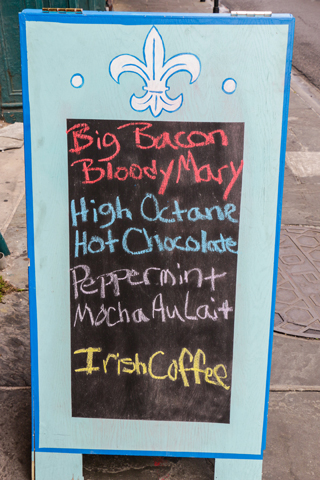 Big Bacon
Bloody Mary
High Octane
Hot Chocolate
Peppermint
Mocha Au Lait
Irish Coffee